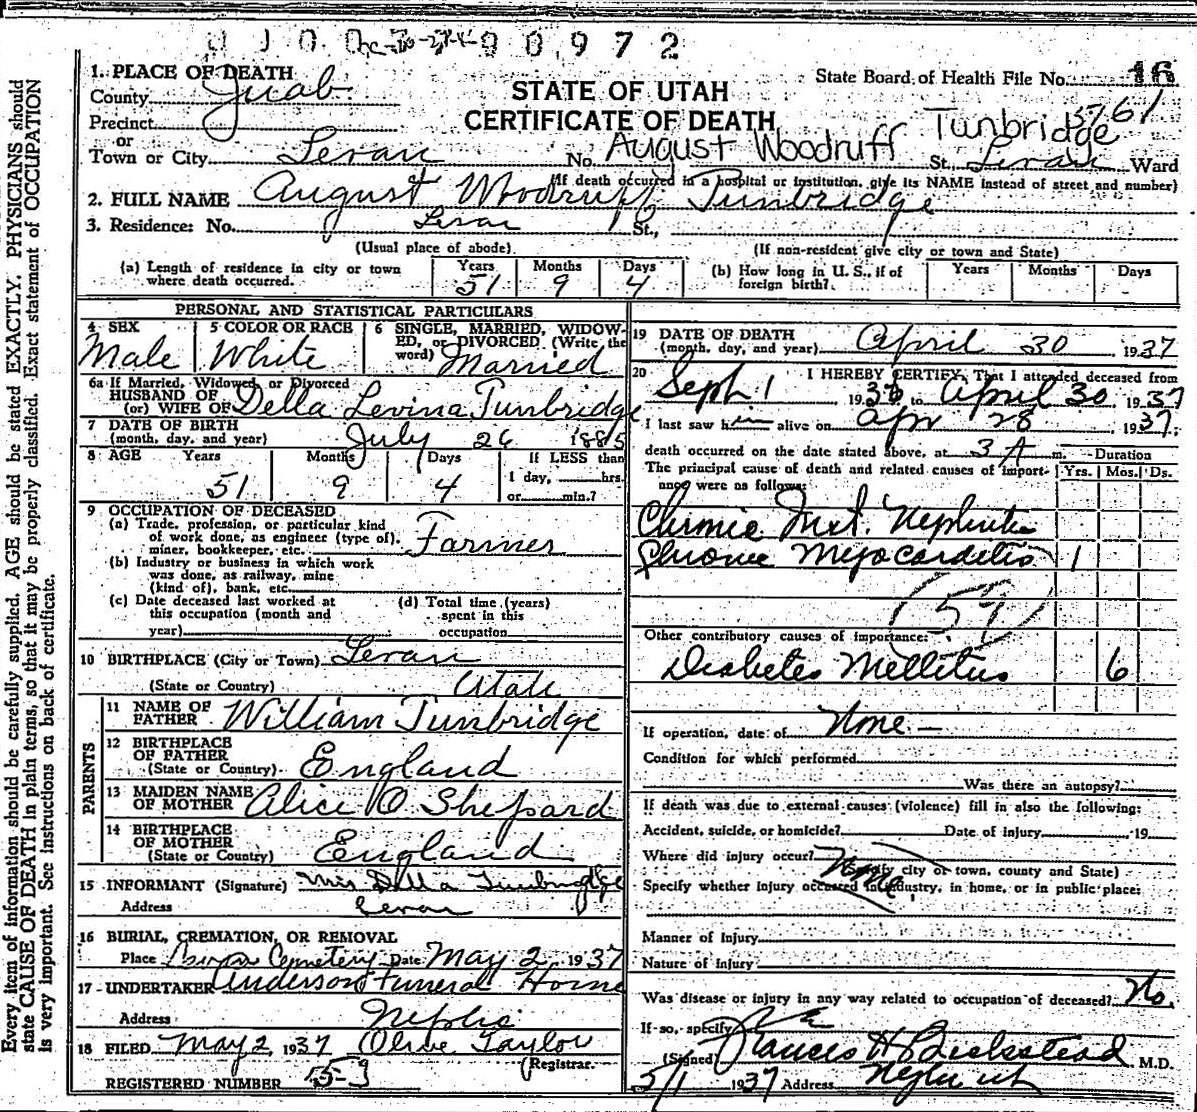 0,972
1. PLACE OF DEATH
State Board of Health File No. 16
County Juab
STATE OF UTAH
Precinct
CERTIFICATE OF DEATH
or
Town or City Levan No. August Woodruff Tunbridge St. Levan Ward
(If death occurred in a hospital or institution, give its NAME instead of street and number)
2. FULL NAME August Woodruff Tunbridge
3. Residence: No. Levan St.,
(Usual place of abode) (If non-resident give city or town and State)
(a) Length of residence in city or town where death occurred. Years 51 Months 9 Days 4
(b) How long in U. S., if of foreign birth? Years Months Days
PERSONAL AND STATISTICAL PARTICULARS
4 SEX Male
5 COLOR OR RACE White
6 SINGLE, MARRIED, WIDOWED, or DIVORCED (Write the word) Married
6a If Married, Widowed, or Divorced
HUSBAND OF
(or) WIFE OF Della Levina Tunbridge
7 DATE OF BIRTH
(month, day, and year) July 26 1885
8 AGE Years 51 Months 9 Days 4 If LESS than 1 day, hrs. or min.?
9 OCCUPATION OF DECEASED
(a) Trade, profession, or particular kind
of work done, as engineer (type of),
miner, bookkeeper, etc. Farmer
(b) Industry or business in which work
was done, as railway, mine
(kind of), bank, etc.
(c) Date deceased last worked at
this occupation (month and
year)
(d) Total time (years)
spent in this
occupation
10 BIRTHPLACE (City or Town) Levan
(State or Country) Utah
PARENTS
11 NAME OF
FATHER William Tunbridge
12 BIRTHPLACE
OF FATHER
(State or Country) England
13 MAIDEN NAME
OF MOTHER Alice O Sheppard
14 BIRTHPLACE
OF MOTHER
(State or Country) England
15 INFORMANT (Signature) Mrs Della Tunbridge
Address Levan
16 BURIAL, CREMATION, OR REMOVAL
Place Levan Cemetery Date May 2, 1937
17 UNDERTAKER Anderson Funeral Home
Address Nephi
18 FILED May 2, 1937 Olive Taylor
Registrar.
REGISTERED NUMBER
19 DATE OF DEATH
(month, day, and year) April 30 1937
20 I HEREBY CERTIFY, That I attended deceased from
Sept 1 1936 to April 30 1937
I last saw him alive on Apr 28 1937.
death occurred on the date stated above, at 3 A m.
The principal cause of death and related causes of importance were as follows:
Duration
Yrs. Mos. Ds.
Chronic Int. Nephritis
Chronic Myocarditis 1
(59)
Other contributory causes of importance:
Diabetes Mellitus 6
If operation, date of None
Condition for which performed
Was there an autopsy?
If death was due to external causes (violence) fill in also the following:
Accident, suicide, or homicide? Date of injury 19
Where did injury occur? None
(Specify city or town, county and State)
Specify whether injury occurred in industry, in home, or in public place:
Manner of Injury
Nature of Injury
Was disease or injury in any way related to occupation of deceased? No.
If so, specify
(Signed) Francis H Beckstead M.D.
5/1 1937 Address Nephi Ut
Every item of information should be carefully supplied. AGE should be stated EXACTLY. PHYSICIANS should
state CAUSE OF DEATH in plain terms, so that it may be properly classified. Exact statement of OCCUPATION
is very important. See instructions on back of certificate.